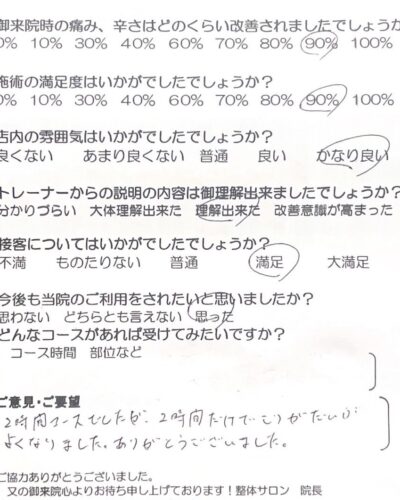 御来院時の痛み、辛さはどのくらい改善されましたでしょうか
0% 10% 30% 40% 60% 70% 80% 90% 100%
施術の満足度はいかがでしたでしょうか?
0% 10% 30% 40% 60% 70% 80% 90% 100%
店内の雰囲気はいかがでしたでしょうか?
良くない あまり良くない 普通 良い かなり良い
トレーナーからの説明の内容は御理解出来ましたでしょうか?
分かりづらい 大体理解出来た 理解出来た 改善意識が高まった
接客についてはいかがでしたでしょうか?
不満 ものたりない 普通 満足 大満足
今後も当院のご利用をされたいと思いましたか?
思わない どちらとも言えない 思った
どんなコースがあれば受けてみたいですか?
コース時間 部位など
ご意見・ご要望
2時間コースでしたが、2時間だけでこりがだいぶ
よくなりました。ありがとうございました。
ご協力ありがとうございました。
又の御来院心よりお待ち申し上げております!整体サロン 院長